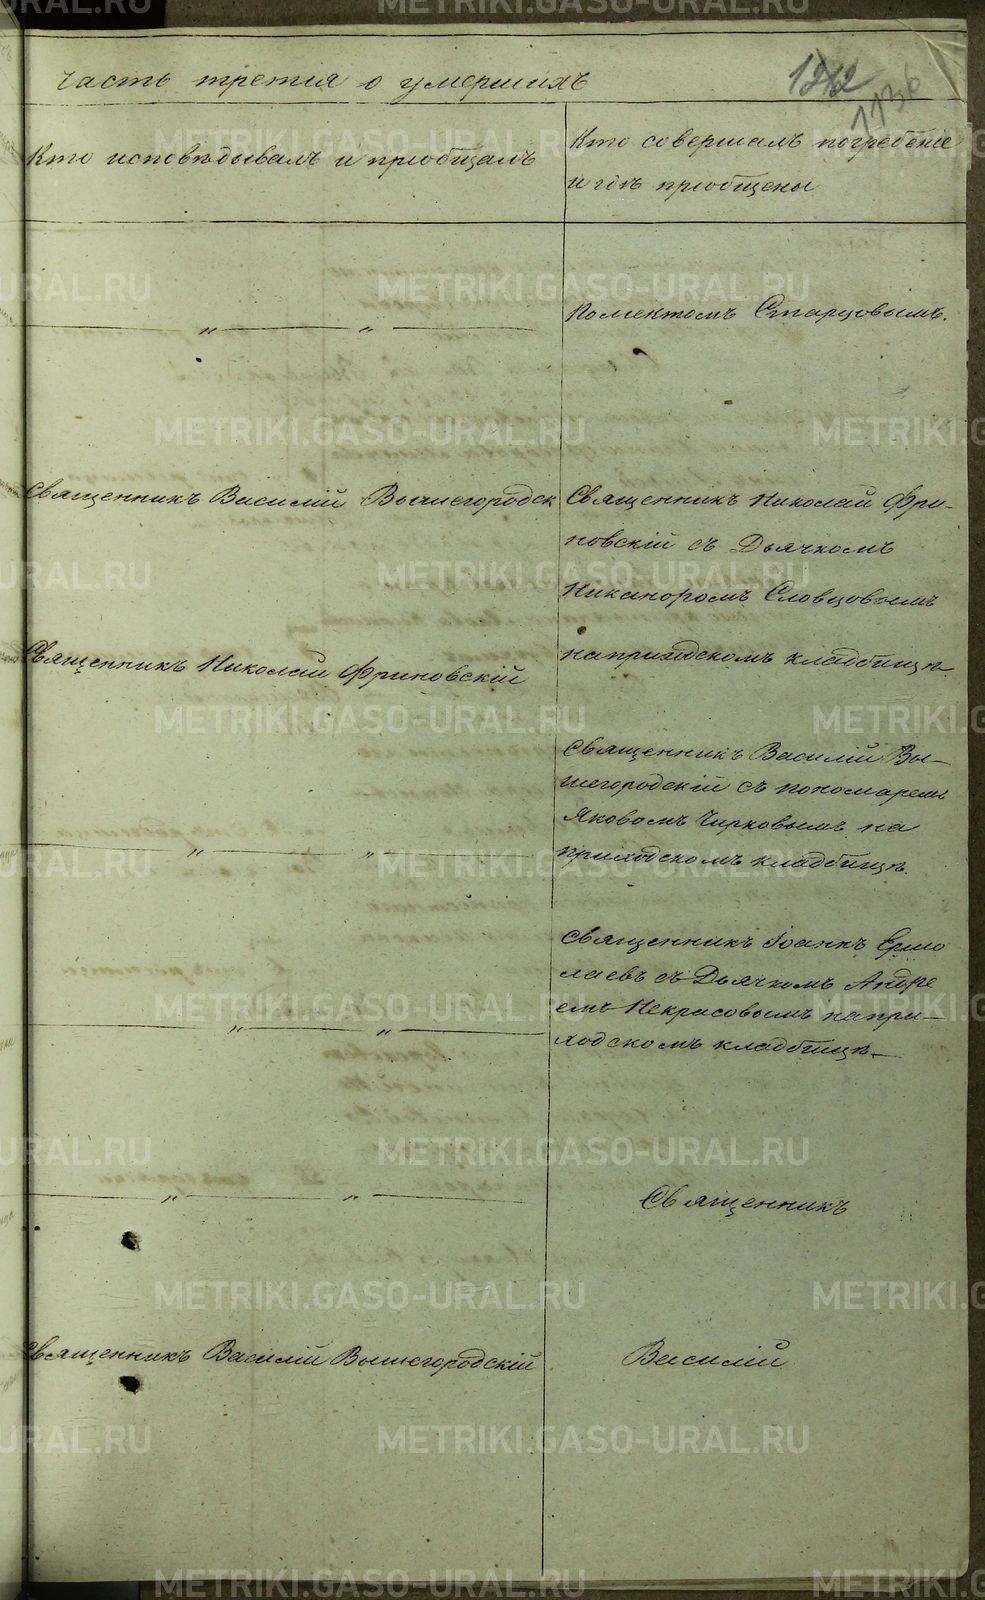 Часть третія о умершихъ
1242
1130
Кто исповѣдывалъ и пріобщалъ
Кто совершалъ погребеніе
и гдѣ пріобщены
Поликтомъ Старцовымъ.
Священникъ Василій Вышегородск
Священникъ Николай Фри-
новскій съ Дьячкомъ
Никаноромъ Словцовымъ
на приходскомъ кладбищѣ
Священникъ Николай Фриновскій
Священникъ Василій Вы-
шегородскій съ пономаремъ
Яковомъ Чирковымъ на
приходскомъ кладбищѣ.
Священникъ Іоаннъ Ермо
лаевъ съ Дьячкомъ Андре
емъ Некрасовымъ на при-
ходскомъ кладбищѣ
Священникъ
Священникъ Василій Вышегородскій
Василій
METRIKI.GASO-URAL.RU